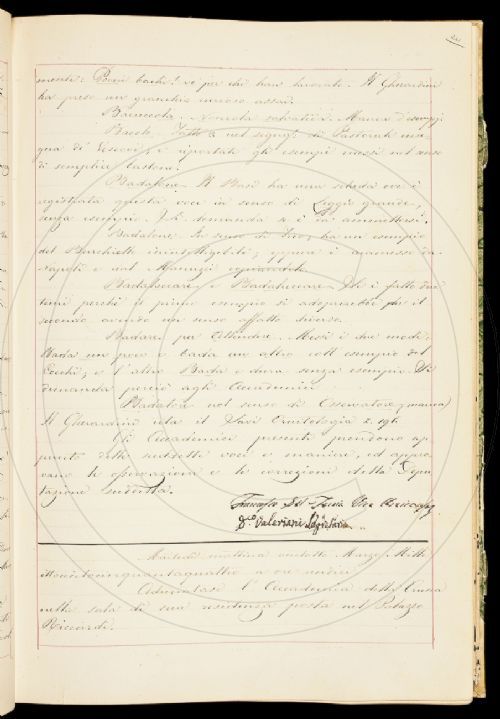 mente: Poveri bachi! se' pei chi han lavorato. Il Gherardini
ha preso un granchio curioso assai.
Baciocola. Nocciola salvatica. Manca d'esempj.
Bacolo. Fatto nel signif: di Pastorale
di Vescovi, e riportati gli esempi messi nel senso
di semplice bastone.
Badalone. Il Basi ha una scheda ove è
registrata questa voce in senso di Leggio grande,
senza esempio. Si domanda se è da ammettersi.
Badalone. In senso di ha un esempio
del Burchiello inintelligibile;
e nel Mannuzzi
Badaluccare e Badaluccare. Se ne è fatto due
temi perchè il primo esempio si adoprerebbe per il
secondo avendo un senso affatto diverso.
Badare per Attendere. Messi i due modi,
Bada un poco e bada un altro coll'esempio del
Cecchi; e l'altro Bada e dura senza esempio. Si
domanda perciò agli Accademici.
Badatore nel senso di Osservatore, (manca)
Il Gherardini cita il Savi Ornitologia 2. 196.
Gli Accademici presenti prendono ap-
punto delle suddette voci e maniere, ed appro-
vano le osservazioni e le correzioni della Depu-
tazione suddetta.
Francesco Del Furia Vice Arciconsolo
Valeriani Segretario
Martedì mattina ventotto Marzo Mille
ottocentocinquantaquattro a ore undici
Adunatasi l'Accademia della Crusca
nella sala di sua residenza posta nel Palazzo
Riccardi.